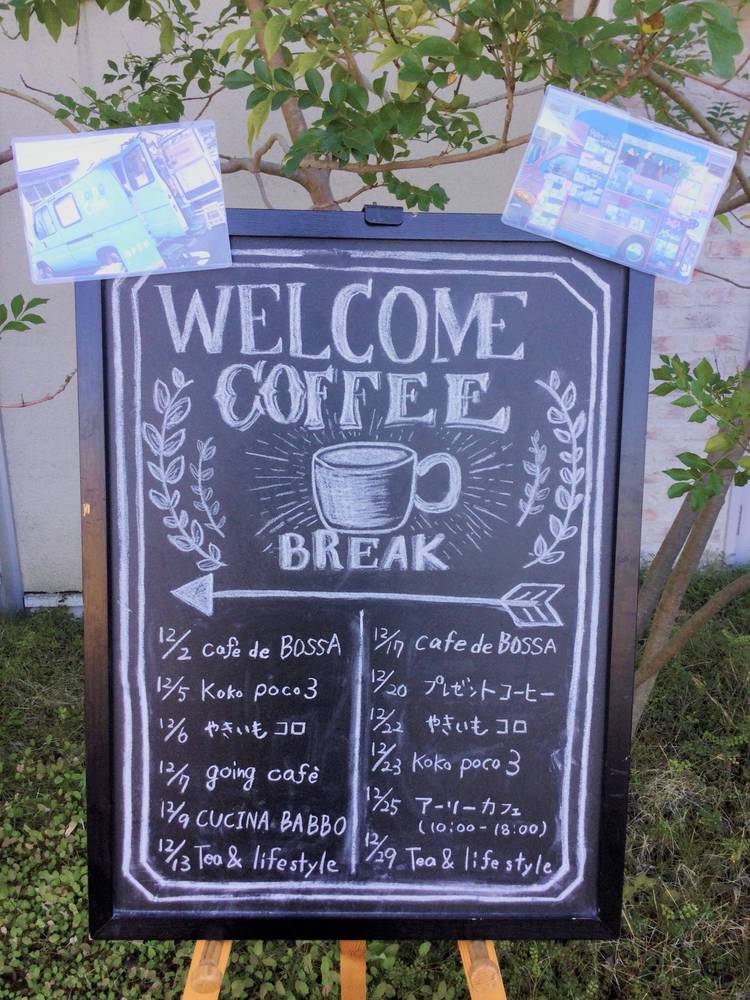 WELCOME
COFFEE
BREAK
12/2 cafe de BOSSA
12/5 Koko poco3
12/6 やきいも コロ
12/7 going cafè
12/9 CUCINA BABBO
12/13 Tea & lifestyle
12/17 cafe de BOSSA
12/20 プレゼントコーヒー
12/22 やきいも コロ
12/23 Koko poco 3
12/25 アーリーカフェ
(10:00-18:00)
12/29 Tea & life style